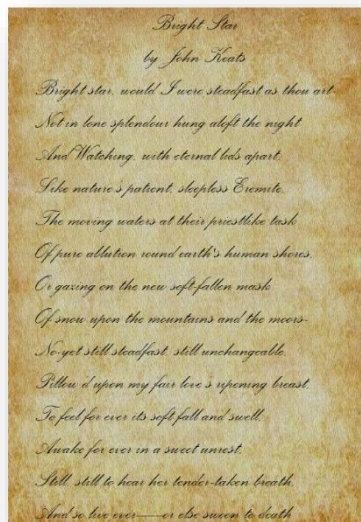 Bright Star
by John Keats
Bright star, would I were steadfast as thou art-
Not in lone splendour hung aloft the night
And Watching, with eternal lids apart,
Like nature's patient, sleepless Eremite,
The moving waters at their priestlike task
Of pure ablution round earth's human shores,
Or gazing on the new soft-fallen mask
Of snow upon the mountains and the moors-
No-yet still steadfast, still unchangeable,
Pillow'd upon my fair love's ripening breast,
To feel for ever its soft fall and swell,
Awake for ever in a sweet unrest,
Still, still to hear her tender-taken breath,
And so live ever——or else swoon to death